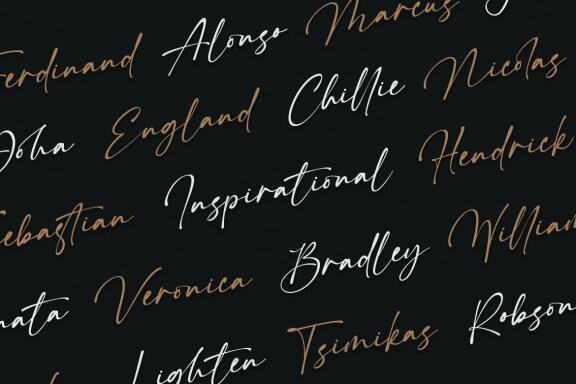 Ferdinand Alonso Marcus
Doha England Chillie Nicolas
Sebastian Inspirational Hendrick
nata Veronica Bradley William
Lighten Tsimikas Robson